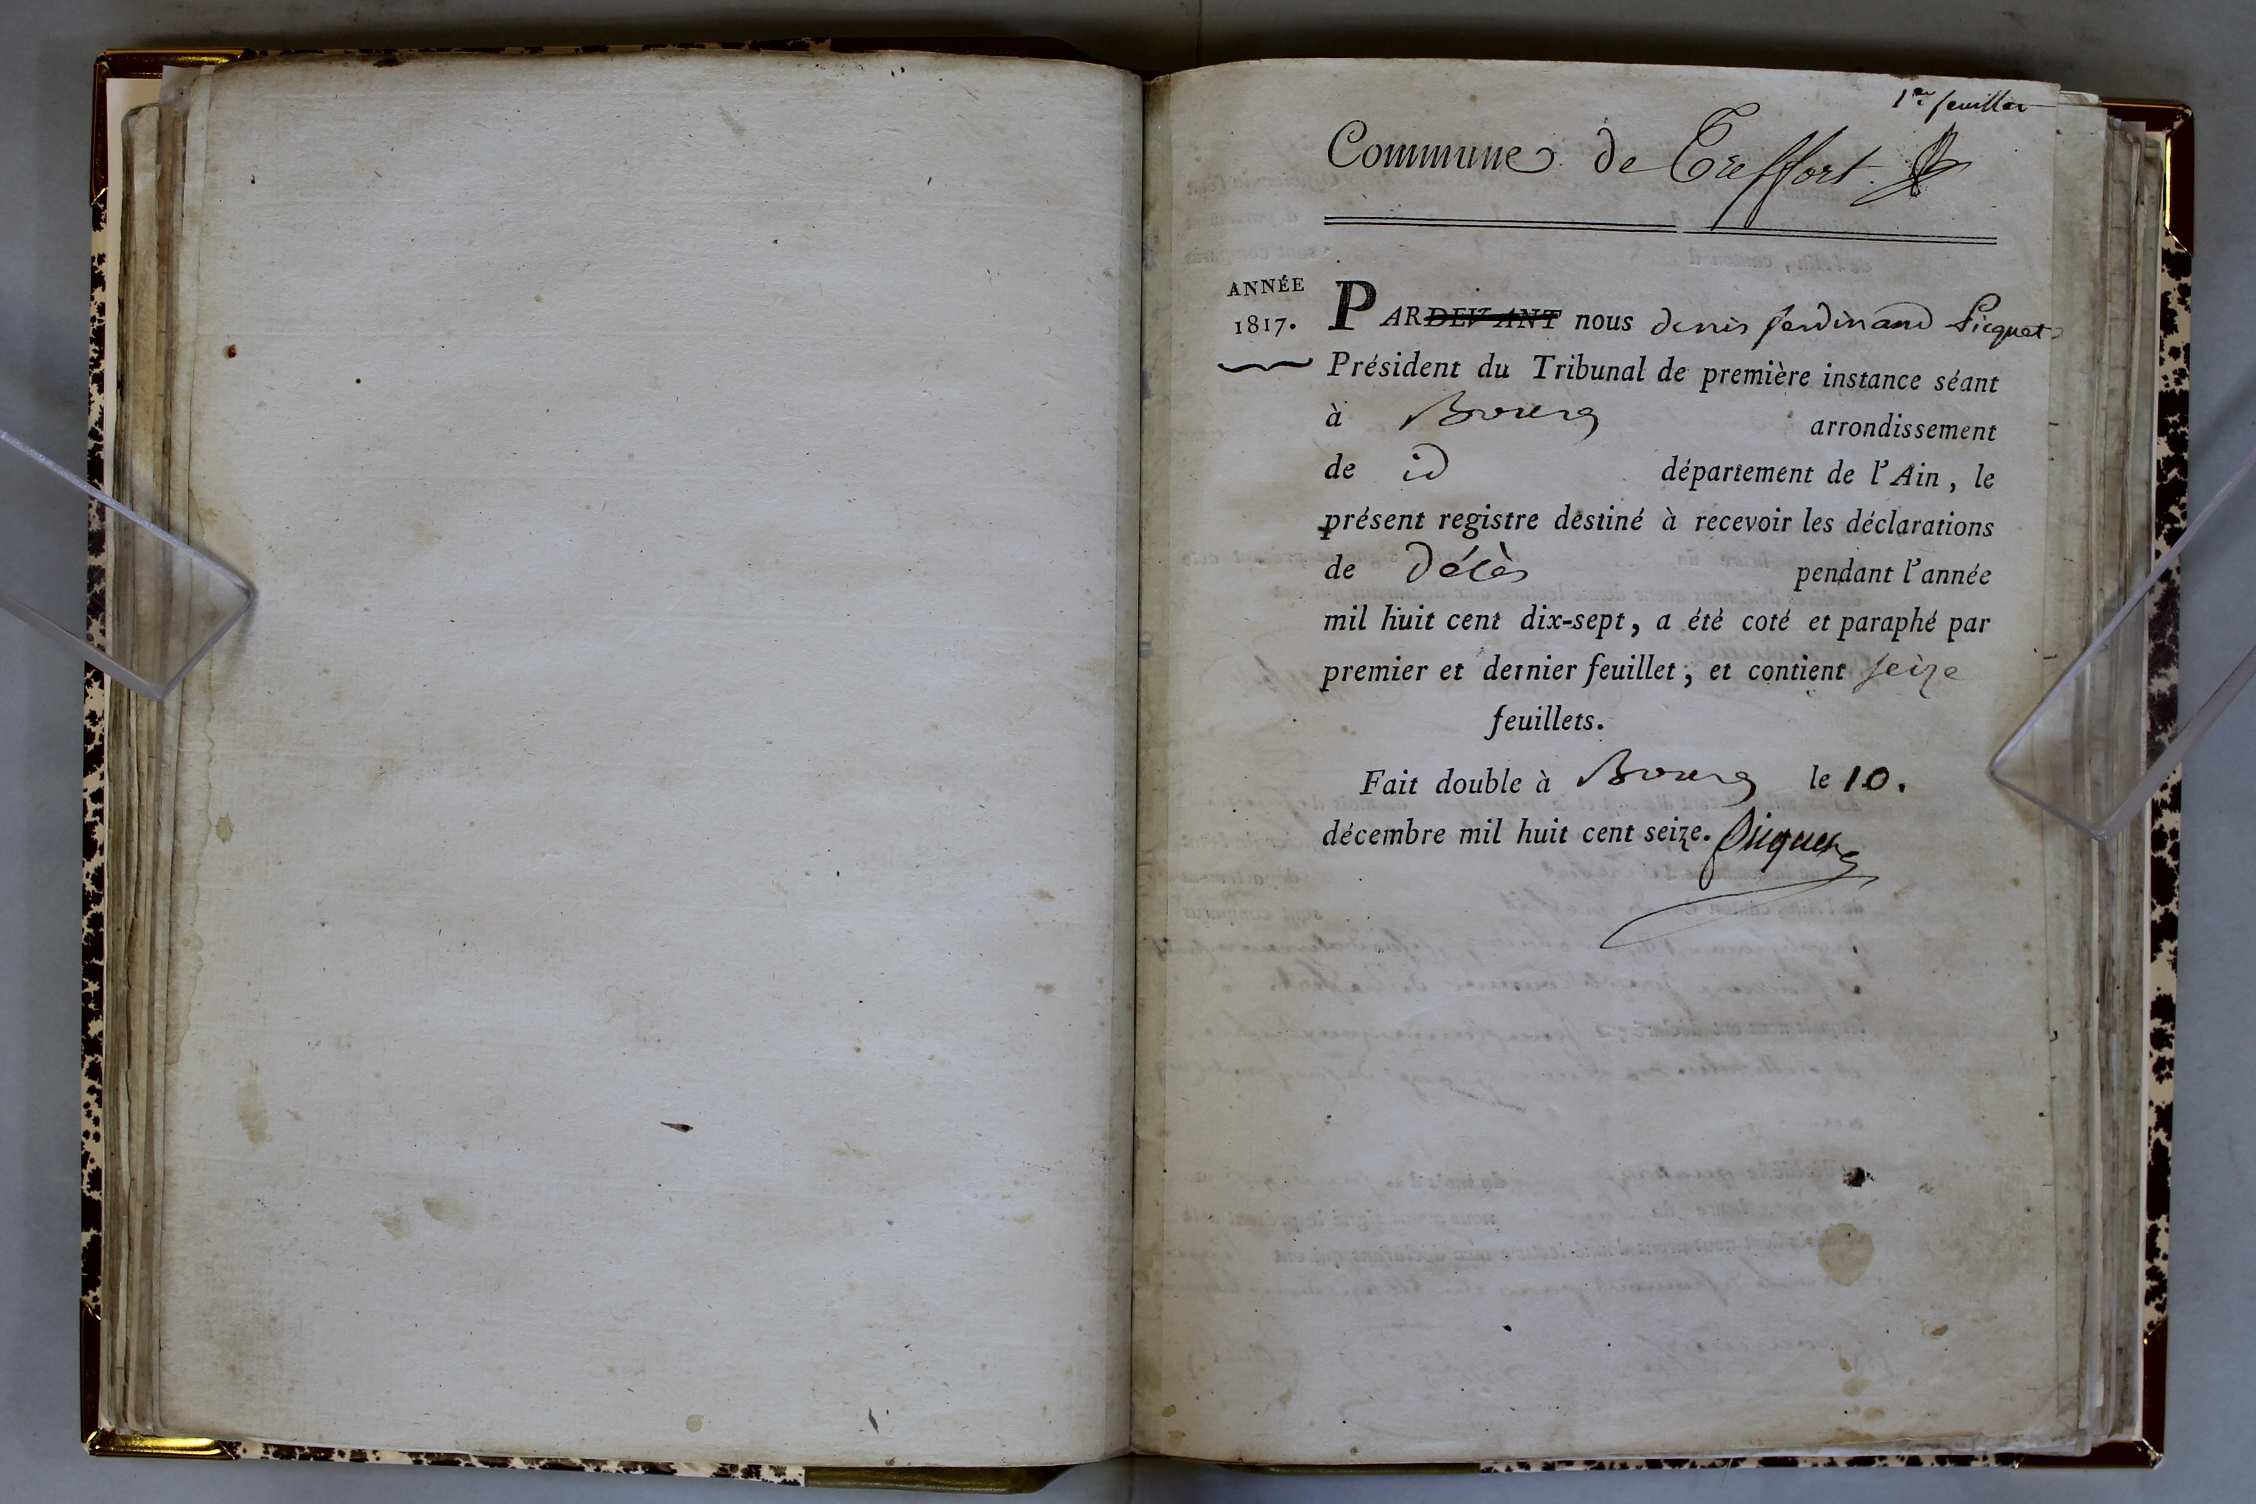 1er feuillet
Commune de Treffort.
ANNÉE
1817.
PARDEVANT nous denis ferdinand Picquet
Président du Tribunal de première instance séant
à Bourg arrondissement
de id département de l'Ain, le
présent registre destiné à recevoir les déclarations
de Décès pendant l'année
mil huit cent dix-sept, a été coté et paraphé par
premier et dernier feuillet, et contient seize
feuillets.
Fait double à Bourg le 10.
décembre mil huit cent seize. Picquet